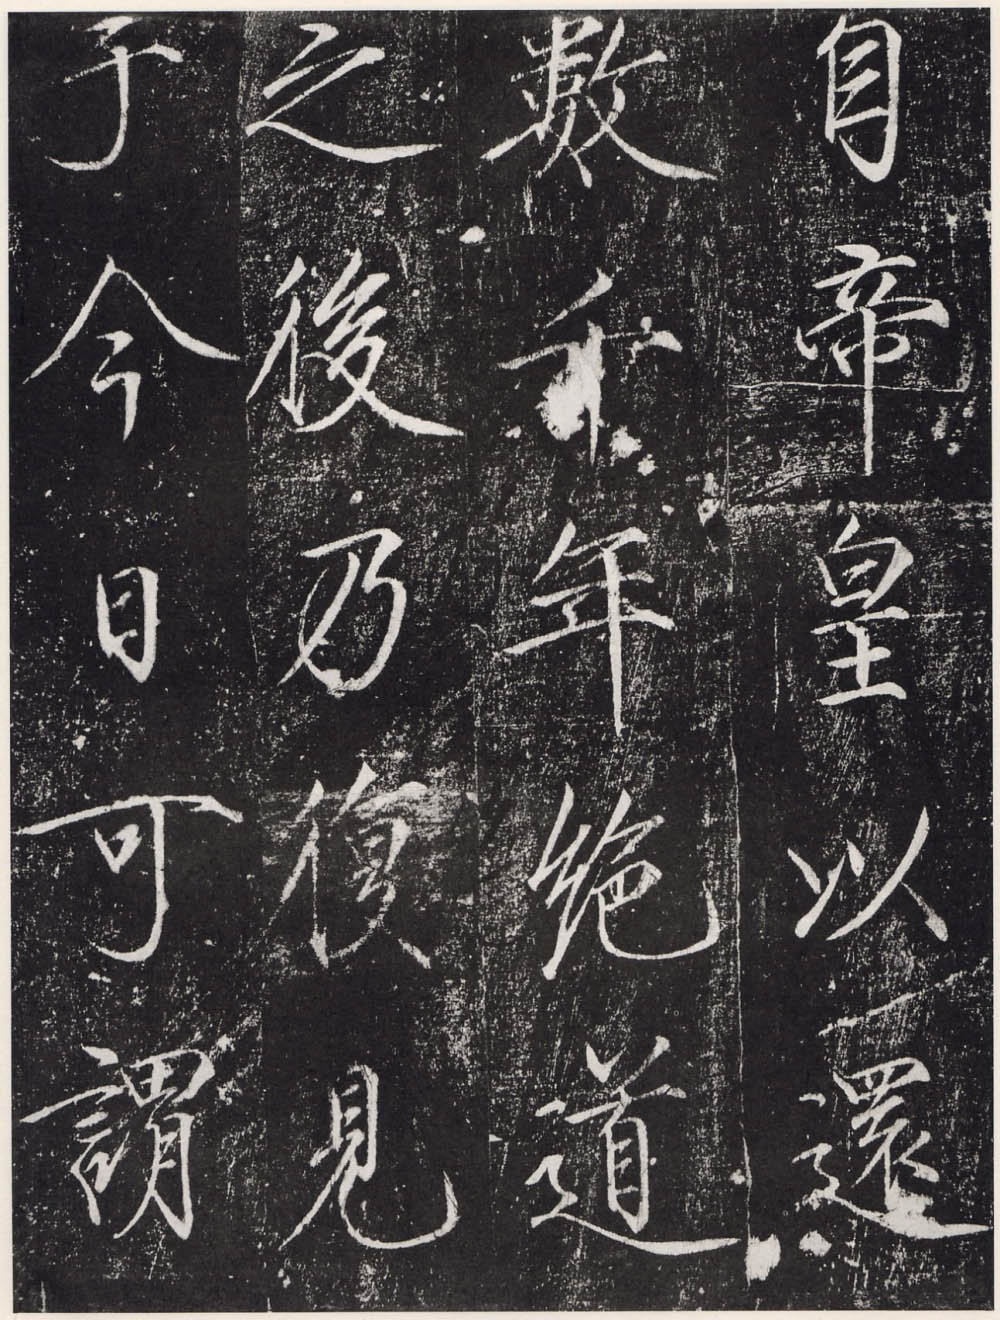 自帝皇以還
數千年絶道
之後乃復見
于今日可謂